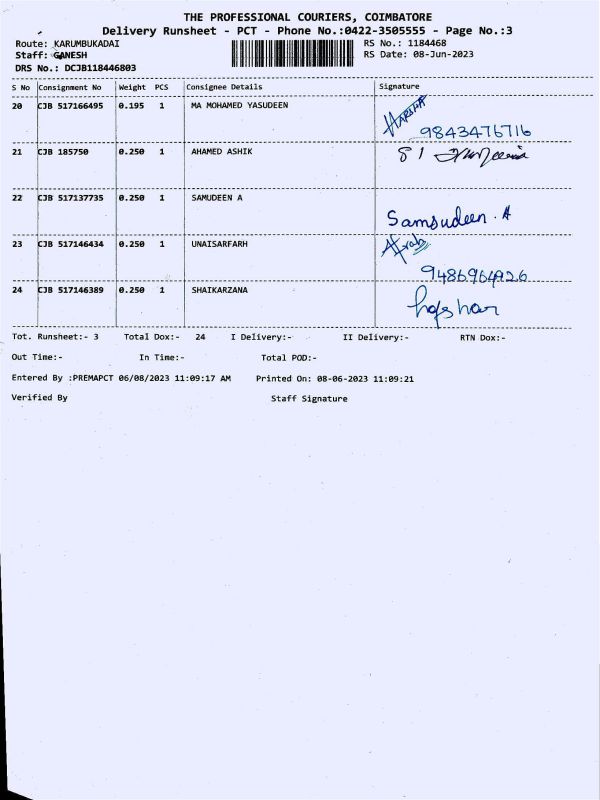 THE PROFESSIONAL COURIERS, COIMBATORE
Delivery Runsheet - PCT - Phone No.:0422-3505555 - Page No.:3
Route: KARUMBUKADAI RS No.: 1184468
Staff: GANESH RS Date: 08-Jun-2023
DRS No.: DCJB118446803
S No Consignment No Weight PCS Consignee Details Signature
20 CJB 517166495 0.195 1 MA MOHAMED YASUDEEN
9843476716
21 CJB 185750 0.250 1 AHAMED ASHIK
22 CJB 517137735 0.250 1 SAMUDEEN A
Samsudeen. A
23 CJB 517146434 0.250 1 UNAISARFARH
9486964926
24 CJB 517146389 0.250 1 SHAIKARZANA
Tot. Runsheet:- 3 Total Dox:- 24 I Delivery:- II Delivery:- RTN Dox:-
Out Time:- In Time:- Total POD:-
Entered By :PREMAPCT 06/08/2023 11:09:17 AM Printed On: 08-06-2023 11:09:21
Verified By Staff Signature